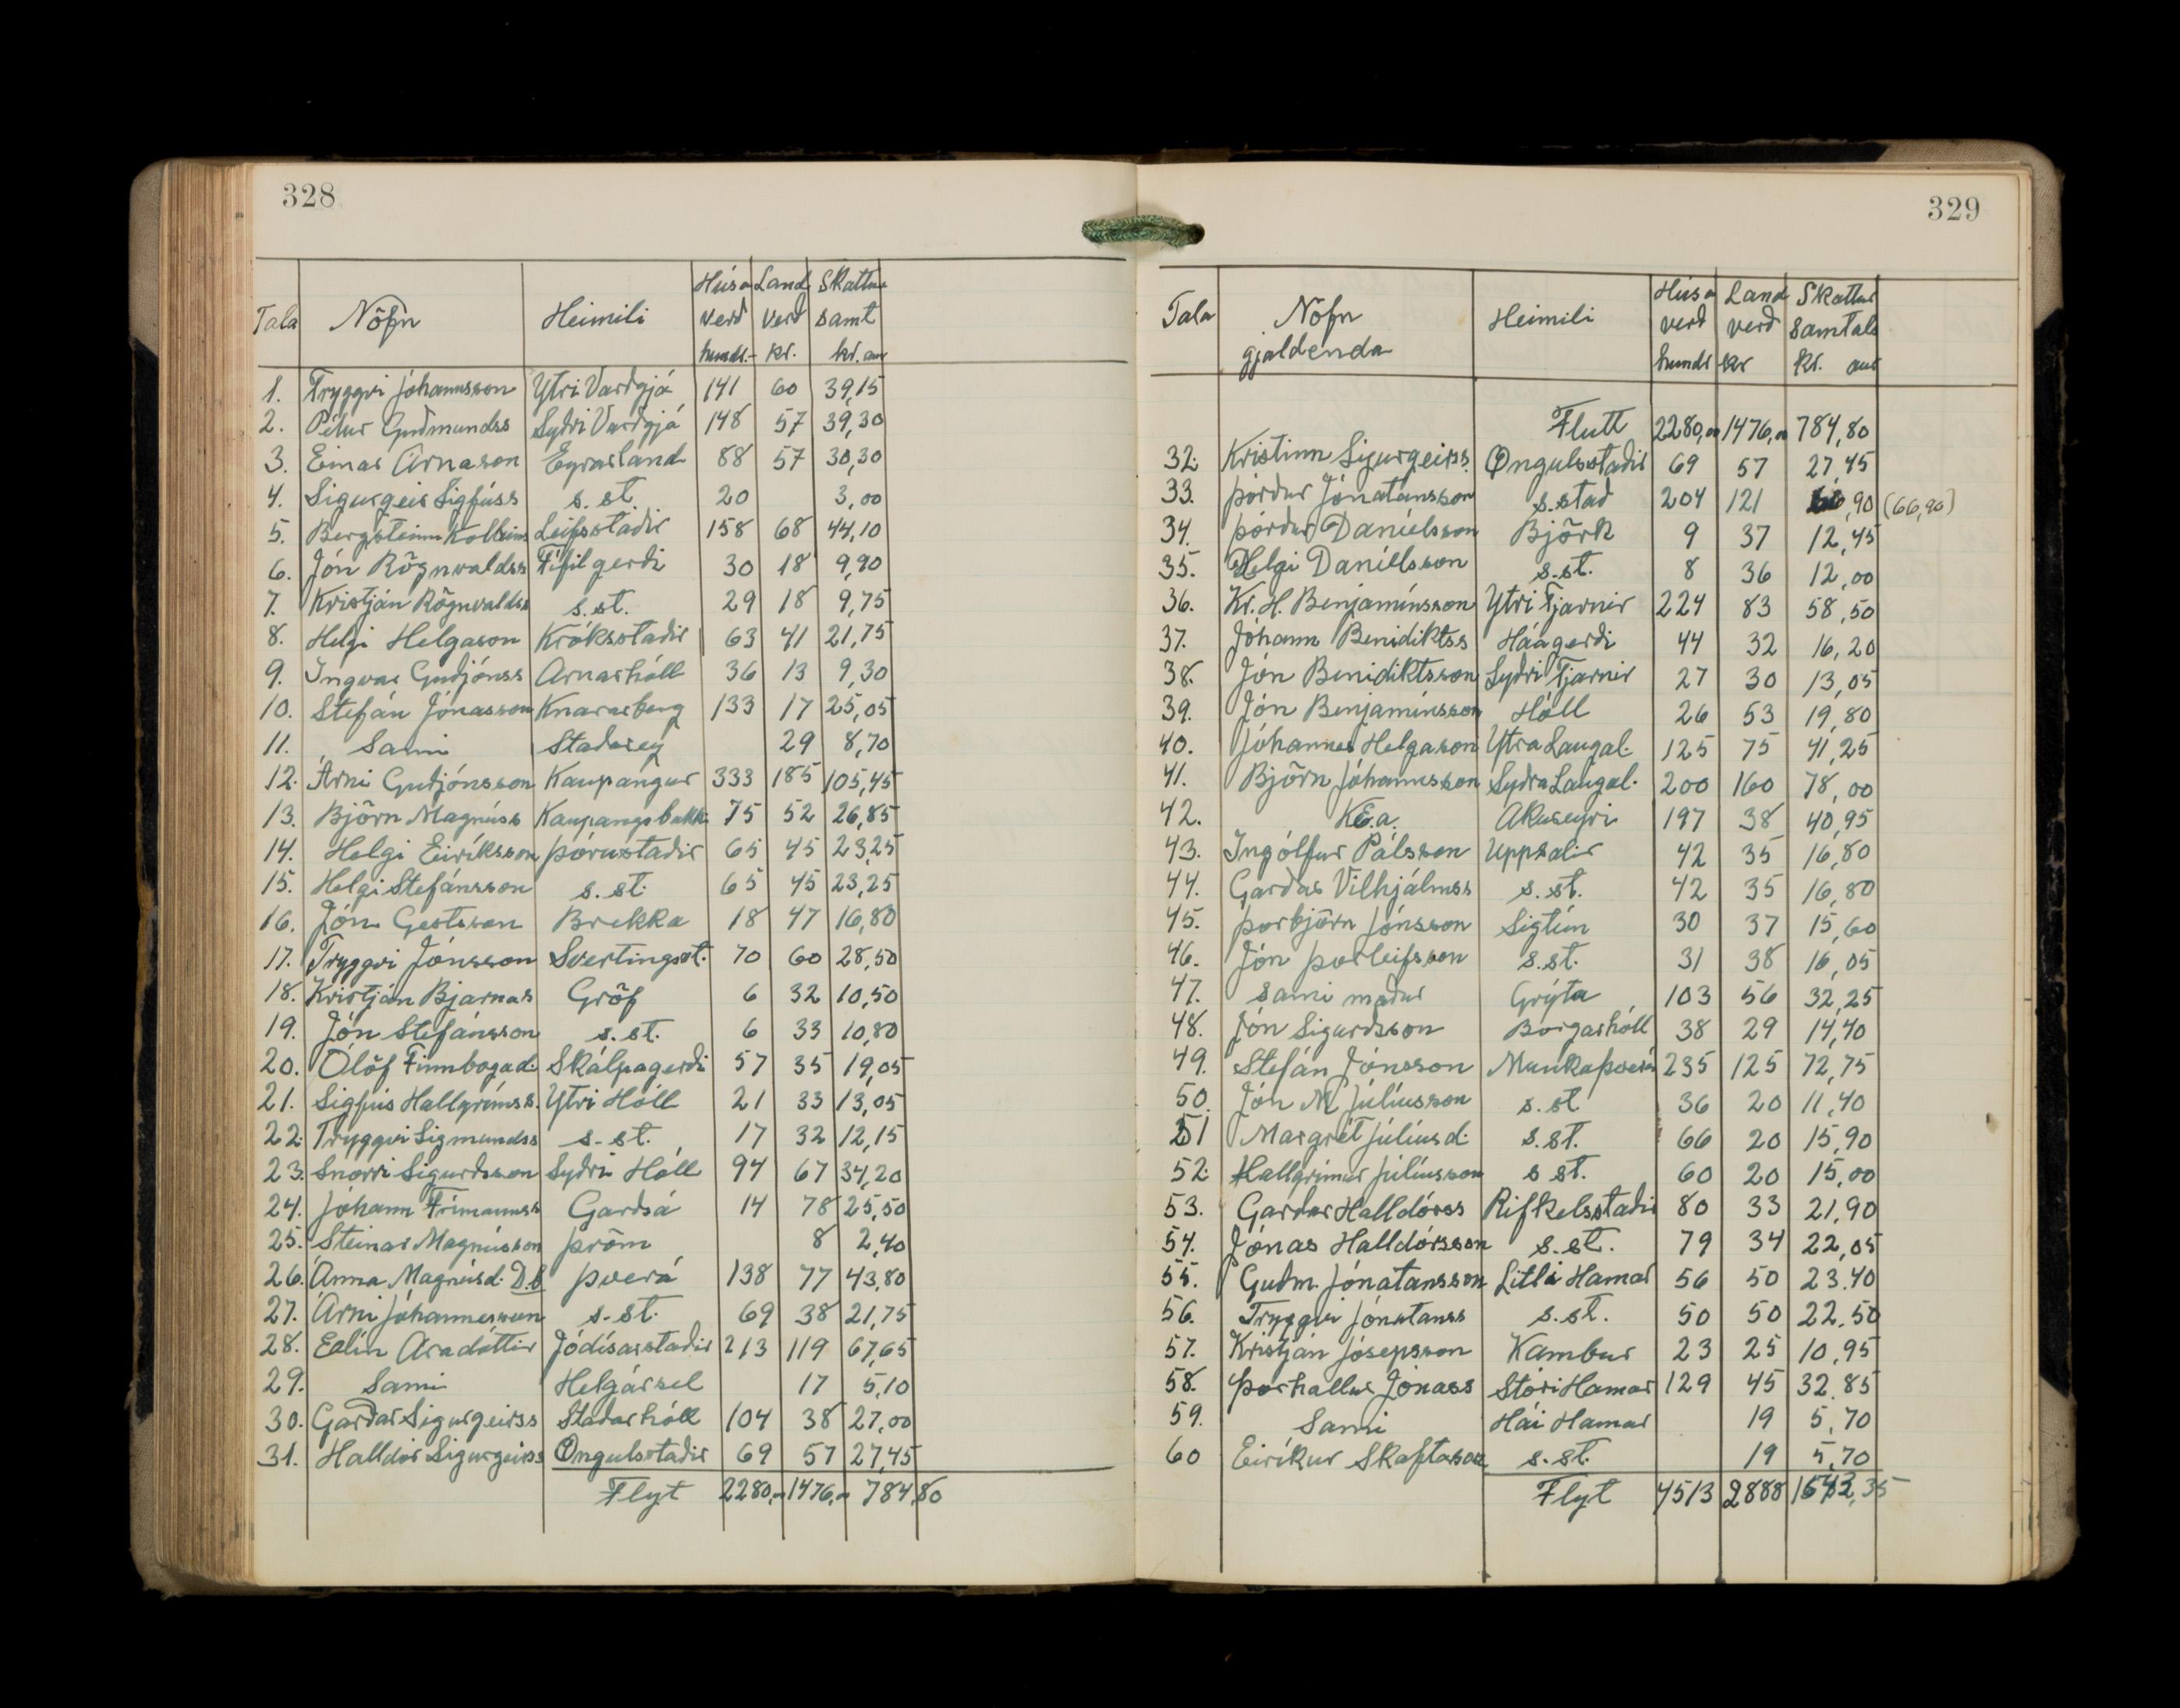 328
Tala Nöfn Heimili Húsa verð hundr. Land verð kr. Skattur samt kr. au
1. Tryggvi Jóhannsson Ytri Varðgjá 141 60 39,15
2. Pétur Guðmundss Syðri Varðgjá 148 57 39,30
3. Einar Árnason Eyrarland 88 57 30,30
4. Sigurgeir Sigfúss s. st. 20 3,00
5. Bergsteinn Kolbeins Leifsstaðir 158 68 44,10
6. Jón Rögnvaldss Fífilgerði 30 18 9,90
7. Kristján Rögnvaldss s. st. 29 18 9,75
8. Helgi Helgason Króksstaðir 63 41 21,75
9. Ingvar Guðjónss Arnarhóll 36 13 9,30
10. Stefán Jónasson Knararberg 133 17 25,05
11. Sami Staðarey 29 8,70
12. Árni Guðjónsson Kaupangur 333 185 105,45
13. Björn Magnúss Kaupangsbakk. 75 52 26,85
14. Helgi Eiríksson Þórustaðir 65 45 23,25
15. Helgi Stefánsson s. st. 65 45 23,25
16. Jón Gestsson Brekka 18 47 16,80
17. Tryggvi Jónsson Svertingsst. 70 60 28,50
18. Kristján Bjarnas Gröf 6 32 10,50
19. Jón Stefánsson s. st. 6 33 10,80
20. Ólöf Finnbogad. Skálpagerði 57 35 19,05
21. Sigfús Hallgrímss. Ytri Hóll 21 33 13,05
22. Tryggvi Sigmundss s. st. 17 32 12,15
23. Snorri Sigurðsson Syðri Hóll 94 67 34,20
24. Jóhann Frímannss Garðsá 14 78 25,50
25. Steinar Magnússon Þröm 8 2,40
26. Anna Magnúsd. D.b Þverá 138 77 43,80
27. Árni Jóhannesson s. st. 69 38 21,75
28. Eelín Aradóttir Jódísarstaðir 213 119 67,65
29. Sami Helgársel 17 5,10
30. Garðar Sigurgeirss Staðarhóll 104 38 27,00
31. Halldór Sigurgeirss Öngulsstaðir 69 57 27,45
Flyt 2280,00 1476,00 784,80
329
Tala Nöfn gjaldenda Heimili Húsa verð hundr Land verð kr Skattur samtals kr. aur
Flutt 2280,00 1476,00 784,80
32. Kristinn Sigurgeirss. Öngulsstaðir 69 57 27,45
33. Þórður Jónatansson s. stað 204 121 66,90 (66,90)
34. Þórður Daníelsson Björk 9 37 12,45
35. Helgi Daníelsson s. st. 8 36 12,00
36. Kr. H. Benjamínsson Ytri Tjarnir 224 83 58,50
37. Jóhann Benidiktss Háagerði 44 32 16,20
38. Jón Benidiktsson Syðri Tjarnir 27 30 13,05
39. Jón Benjamínsson Hóll 26 53 19,80
40. Jóhannes Helgason Ytra Laugal. 125 75 41,25
41. Björn Jóhannsson Syðra Laugal. 200 160 78,00
42. KE.a. Akureyri 197 38 40,95
43. Ingólfur Pálsson Uppsalir 42 35 16,80
44. Garðar Vilhjálmss s. st. 42 35 16,80
45. Þorbjörn Jónsson Sigtún 30 37 15,60
46. Jón Þorleifsson s. st. 31 38 16,05
47. Sami maður Grýta 103 56 32,25
48. Jón Sigurðsson Borgarhóll 38 29 14,40
49. Stefán Jónsson Munkaþverá 235 125 72,75
50. Jón M Júlíusson s. st 36 20 11,40
51 Margrét Júlíusd. s. st. 66 20 15,90
52. Hallgrímur Júlíusson s st. 60 20 15,00
53. Garðar Halldórss Rifkelsstaðir 80 33 21,90
54. Jónas Halldórsson s. st. 79 34 22,05
55. Guðm. Jónatansson Litli Hamar 56 50 23.40
56. Tryggvi Jónatanss s. st. 50 50 22,50
57. Kristján Jósepsson Kambur 23 25 10,95
58. Þorhallur Jónass Stóri Hamar 129 45 32.85
59. Sami Hái Hamar 19 5,70
60 Eiríkur Skaftason s. st. 19 5,70
Flyt 4513 2888 1543,35